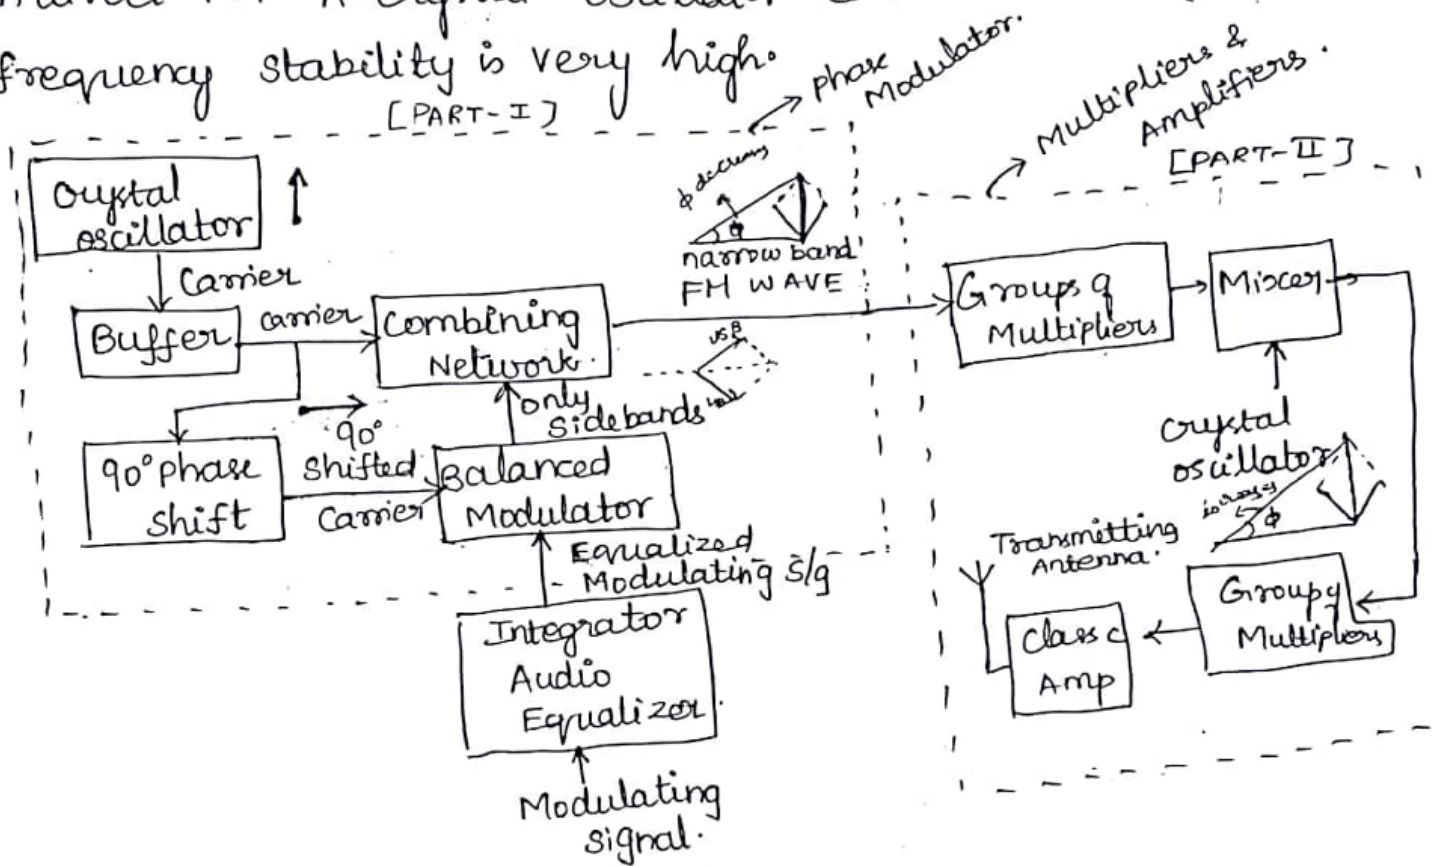 frequency stability is very high.
[PART-I]
phase
Modulator.
Multipliers &
Amplifiers.
[PART-II]
Crystal
oscillator
Carrier
Buffer
carrier
Combining
Network.
ϕ decreases
ϕ
narrow band
FM WAVE
USB
only
Sidebands
90° phase
shift
90°
shifted
Carrier
Balanced
Modulator
Equalized
Modulating s/g
Integrator
Audio
Equalizer
Modulating
signal.
Groups of
Multipliers
Mixer
Crystal
oscillator
increases
ϕ
Group of
Multipliers
Class C
Amp
Transmitting
Antenna.